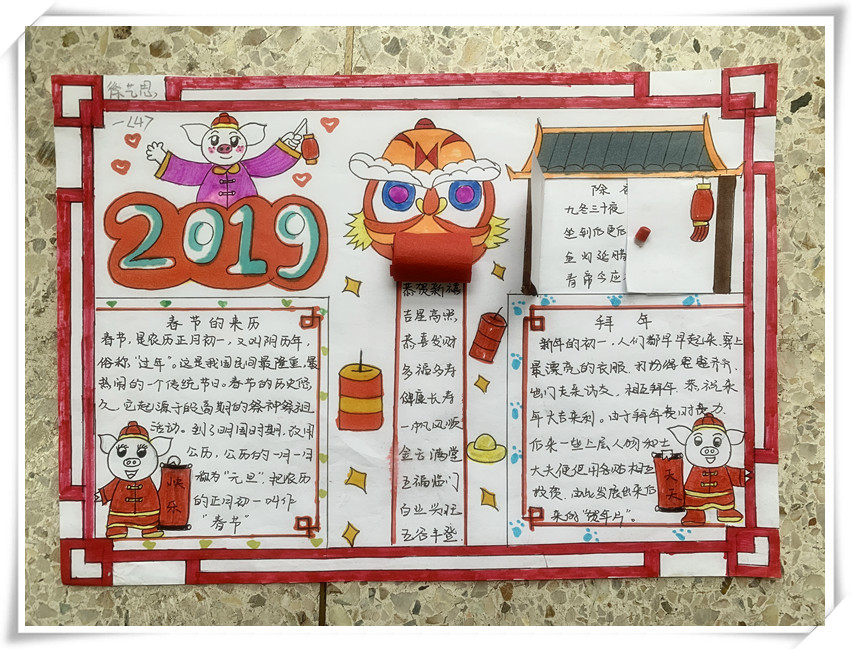 徐艺恩
一(4)
2019
春节的来历
春节,是农历正月初一,又叫阴历年,
俗称"过年"。这是我国民间最隆重,最
热闹的一个传统节日。春节的历史悠
久,它起源于殷商时期的祭神祭祖
活动。到了民国时期,改用
公历,公历的一月一日
称为"元旦",把农历
的正月初一叫作
"春节"
快乐
恭贺新禧
吉星高照
恭喜发财
多福多寿
健康长寿
一帆风顺
金玉满堂
五福临门
百业兴旺
五谷丰登
除
九冬三十夜
坐到伍更
鱼灯延腊
青席今应
拜年
新年的初一,人们都早早起来,穿上
最漂亮的衣服,打扮得整整齐齐,
他们走亲访友,相互拜年,恭祝来
年大吉大利。由于拜年费时费力,
后来一些上层人物和士
大夫便使用名帖相互
投贺,由此发展出来后
来的"贺年片"。
天天